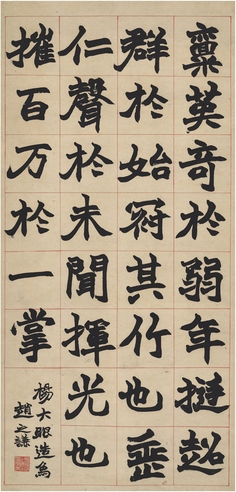 稟英奇於弱年挺超
群於始冠其行也垂
仁聲於未聞揮光也
摧百万於一掌
楊大眼造象
趙之謙